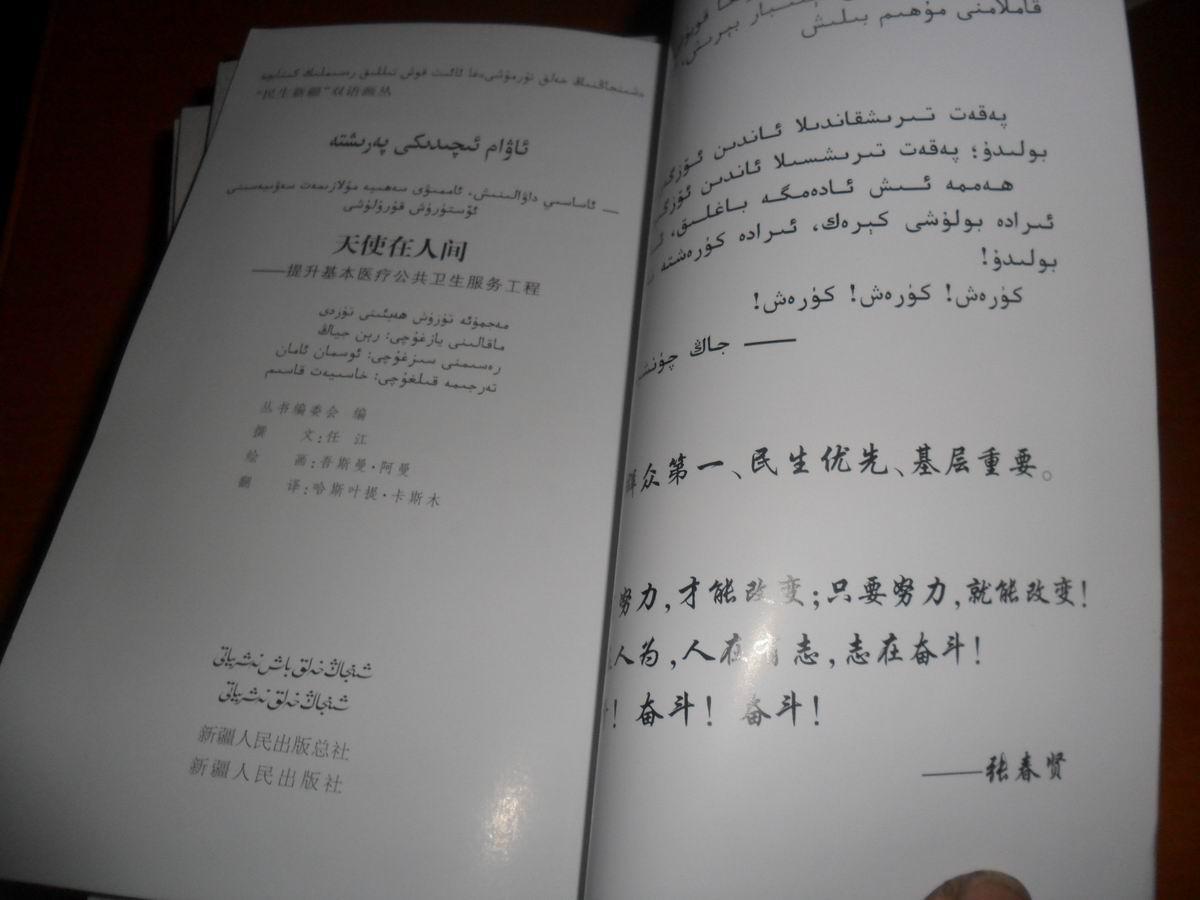 شىنجاڭنىڭ خەلق تۇرمۇشىغا ئائىت قوش تىللىق رەسىملىك كىتابچە
“民生新疆”双语画丛
ئاۋام ئىچىدىكى پەرىشتە
— ئاساسىي داۋالىنىش، ئاممىۋى سەھىيە مۇلازىمەت سەۋىيەسىنى
ئۆستۈرۈش قۇرۇلۇشى
天使在人间
——提升基本医疗公共卫生服务工程
مەجمۇئە تۈزۈش ھەيئىتى تۈزدى
ماقالىنى يازغۇچى: رېن جياڭ
رەسىمنى سىزغۇچى: ئوسمان ئامان
تەرجىمە قىلغۇچى: خاسىيەت قاسىم
丛书编委会 编
撰 文:任 江
绘 画:吾斯曼·阿曼
翻 译:哈斯叶提·卡斯木
شىنجاڭ خەلق باش نەشرىياتى
شىنجاڭ خەلق نەشرىياتى
新疆人民出版总社
新疆人民出版社
ئېتىبار بېرىش،
قاتلامنى مۇھىم بىلىش
پەقەت تىرىشقاندىلا ئاندىن ئۆزگە
بولىدۇ؛ پەقەت تىرىشسىلا ئاندىن ئۆزگە
ھەممە ئىش ئادەمگە باغلىق،
ئىرادە بولۇشى كېرەك، ئىرادە كۈرەشتە
بولىدۇ!
كۈرەش! كۈرەش! كۈرەش!
—— جاڭ چۈنشـ
群众第一、民生优先、基层重要。
努力,才能改变;只要努力,就能改变!
人为,人在有志,志在奋斗!
! 奋斗! 奋斗!
——张春贤